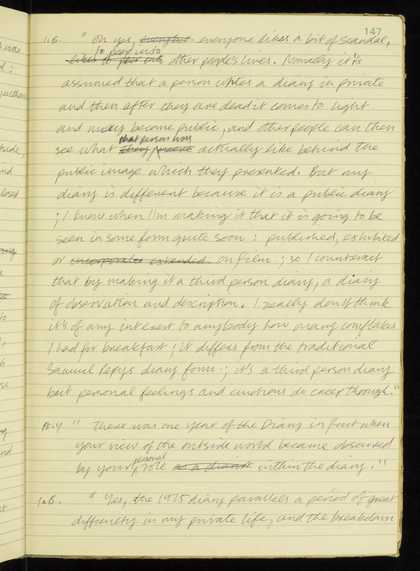 147
I.B. "Oh yes, everyone likes a bit of scandal,
to peer into
likes to peer into other people's lives. Normally it is
assumed that a person writes a diary in private
and then after they are dead it comes to light
and may become public, and other people can then
that person was
see what they were actually like behind the
public image which they presented. But my
diary is different because it is a public diary
; I know when I'm making it that it is going to be
seen in some form quite soon : published, exhibited
or incorporated extended on film ; so I counteract
that by making it a third person diary, a diary
of observation and description. I really don't think
it's of any interest to anybody how many cornflakes
I had for breakfast ; it differs from the traditional
Samuel Pepys diary form ; it's a third person diary
but personal feelings and emotions do creep through."
"There was one year of the Diary in fact when
your view of the outside world became obscured
personal
by your role as a within the diary."
I.B. "Yes, the 1975 diary parallels a period of great
difficulty in my private life, and the breakdown